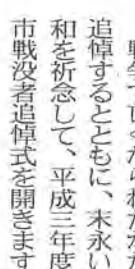 追悼するとともに、末永い
和を祈念して、平成三年度
市戦没者追悼式を開きます